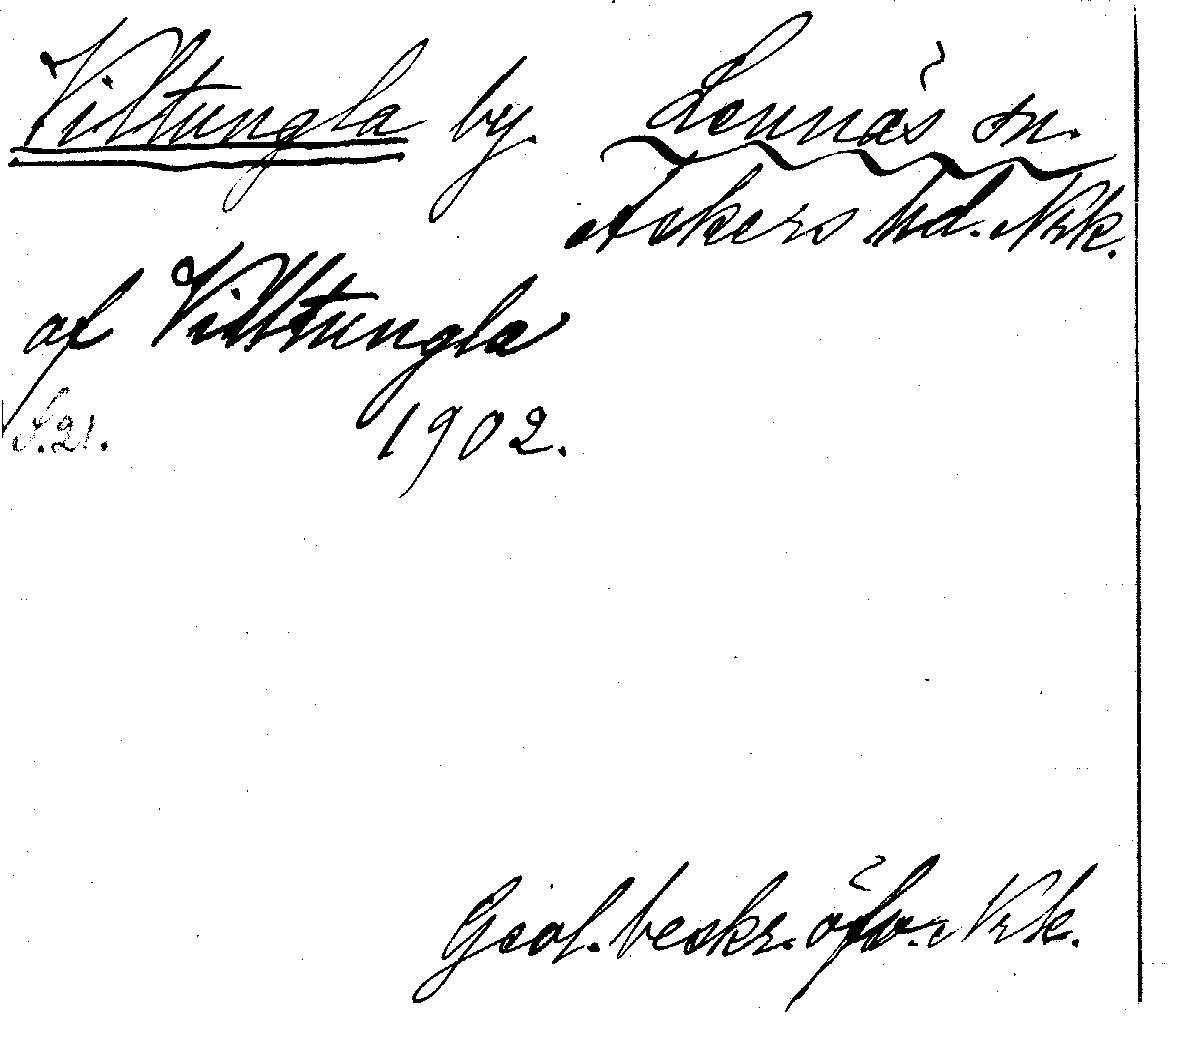 Viltungla by. Lennäs sn.
Askers hd. Nrk.
af Villtungla
S. 21. 1902.
Geol. beskr. öfv. Nrk.